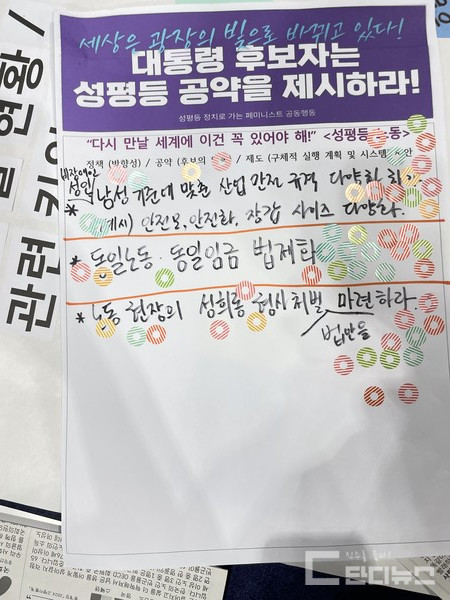 세상은 광장의 빛으로 바뀌고 있다!
대통령 후보자는
성평등 공약을 제시하라!
성평등 정치로 가는 페미니스트 공동행동
"다시 만날 세계에 이건 꼭 있어야 해!" <성평등 노동>
정책 (방향성) / 공약 (후보의 / 제도 (구체적 실행 계획 및 시스템
비장애인
* 성인 남성 기준에 맞춘 산업 안전 규격 다양화
(예시) 안전모, 안전화, 장갑 사이즈 다양화.
* 동일노동·동일임금 법제화
* 노동 현장의 성희롱 형사처벌 마련하라.
법안을
현황/
관련
딴디뉴스